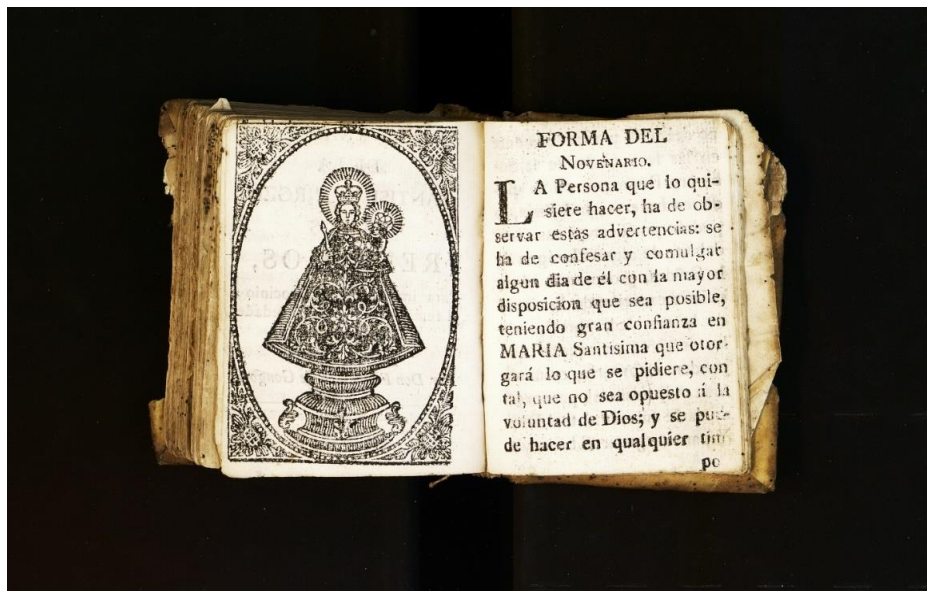 FORMA DEL
NOVENARIO.
LA Persona que lo qui-
siere hacer, ha de ob-
servar estas advertencias: se
ha de confesar y comulgar
algun dia de él con la mayor
disposicion que sea posible,
teniendo gran confianza en
MARIA Santisima que otor-
gará lo que se pidiere, con
tal, que no sea opuesto á la
voluntad de Dios; y se pue-
de hacer en qualquier
po